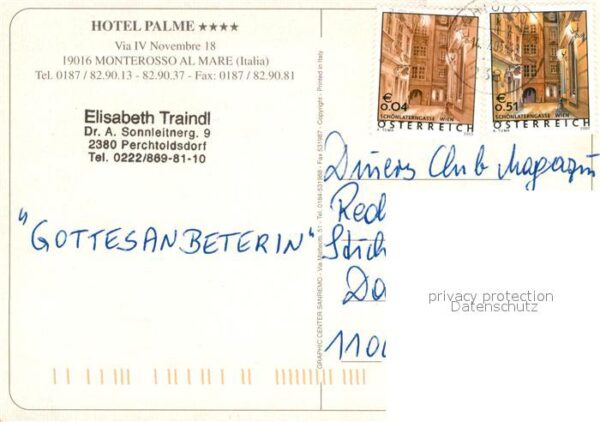 HOTEL PALME ★★★★
Via IV Novembre 18
19016 MONTEROSSO AL MARE (Italia)
Tel. 0187 / 82.90.13 - 82.90.37 - Fax: 0187 / 82.90.81
Elisabeth Traindl
Dr. A. Sonnleitnerg. 9
2380 Perchtoldsdorf
Tel. 0222/869-81-10
"GOTTESANBETERIN"
GRAPHIC CENTER SANREMO - Via Matteotti, 51 - Tel. 0184-531988 - Fax 531987 - Copyright - Printed in Italy
€ 0.04
SCHÖNLATERNGASSE WIEN
ÖSTERREICH
€ 0.51
SCHÖNLATERNGASSE WIEN
ÖSTERREICH
Diners Club Magazin
Red
Da
1100
privacy protection
Datenschutz